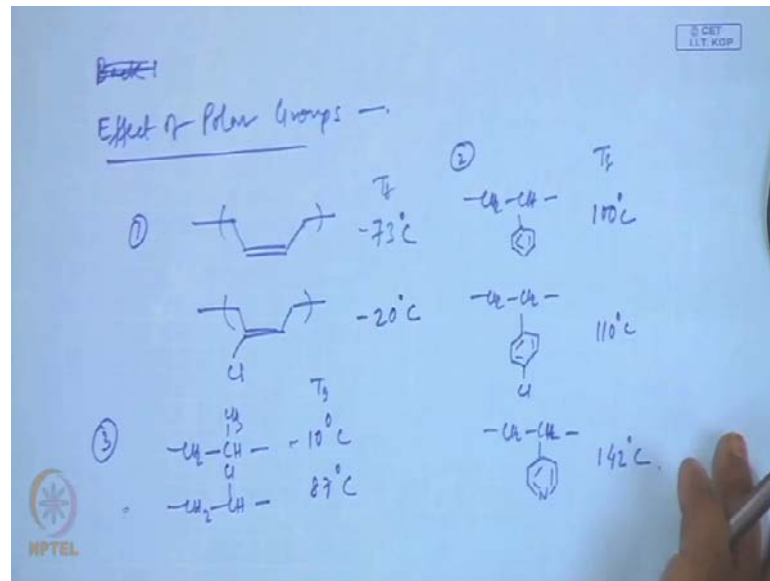 © CET
I.I.T. KGP
Effect of Polar Groups —.
① Tg
-73°C
-20°C
Cl
② Tg
-CH2-CH- 100°C
-CH2-CH- 110°C
Cl
-CH2-CH- 142°C.
N
③ Tg
CH3
-CH2-CH- -10°C
Cl
-CH2-CH- 87°C
NPTEL